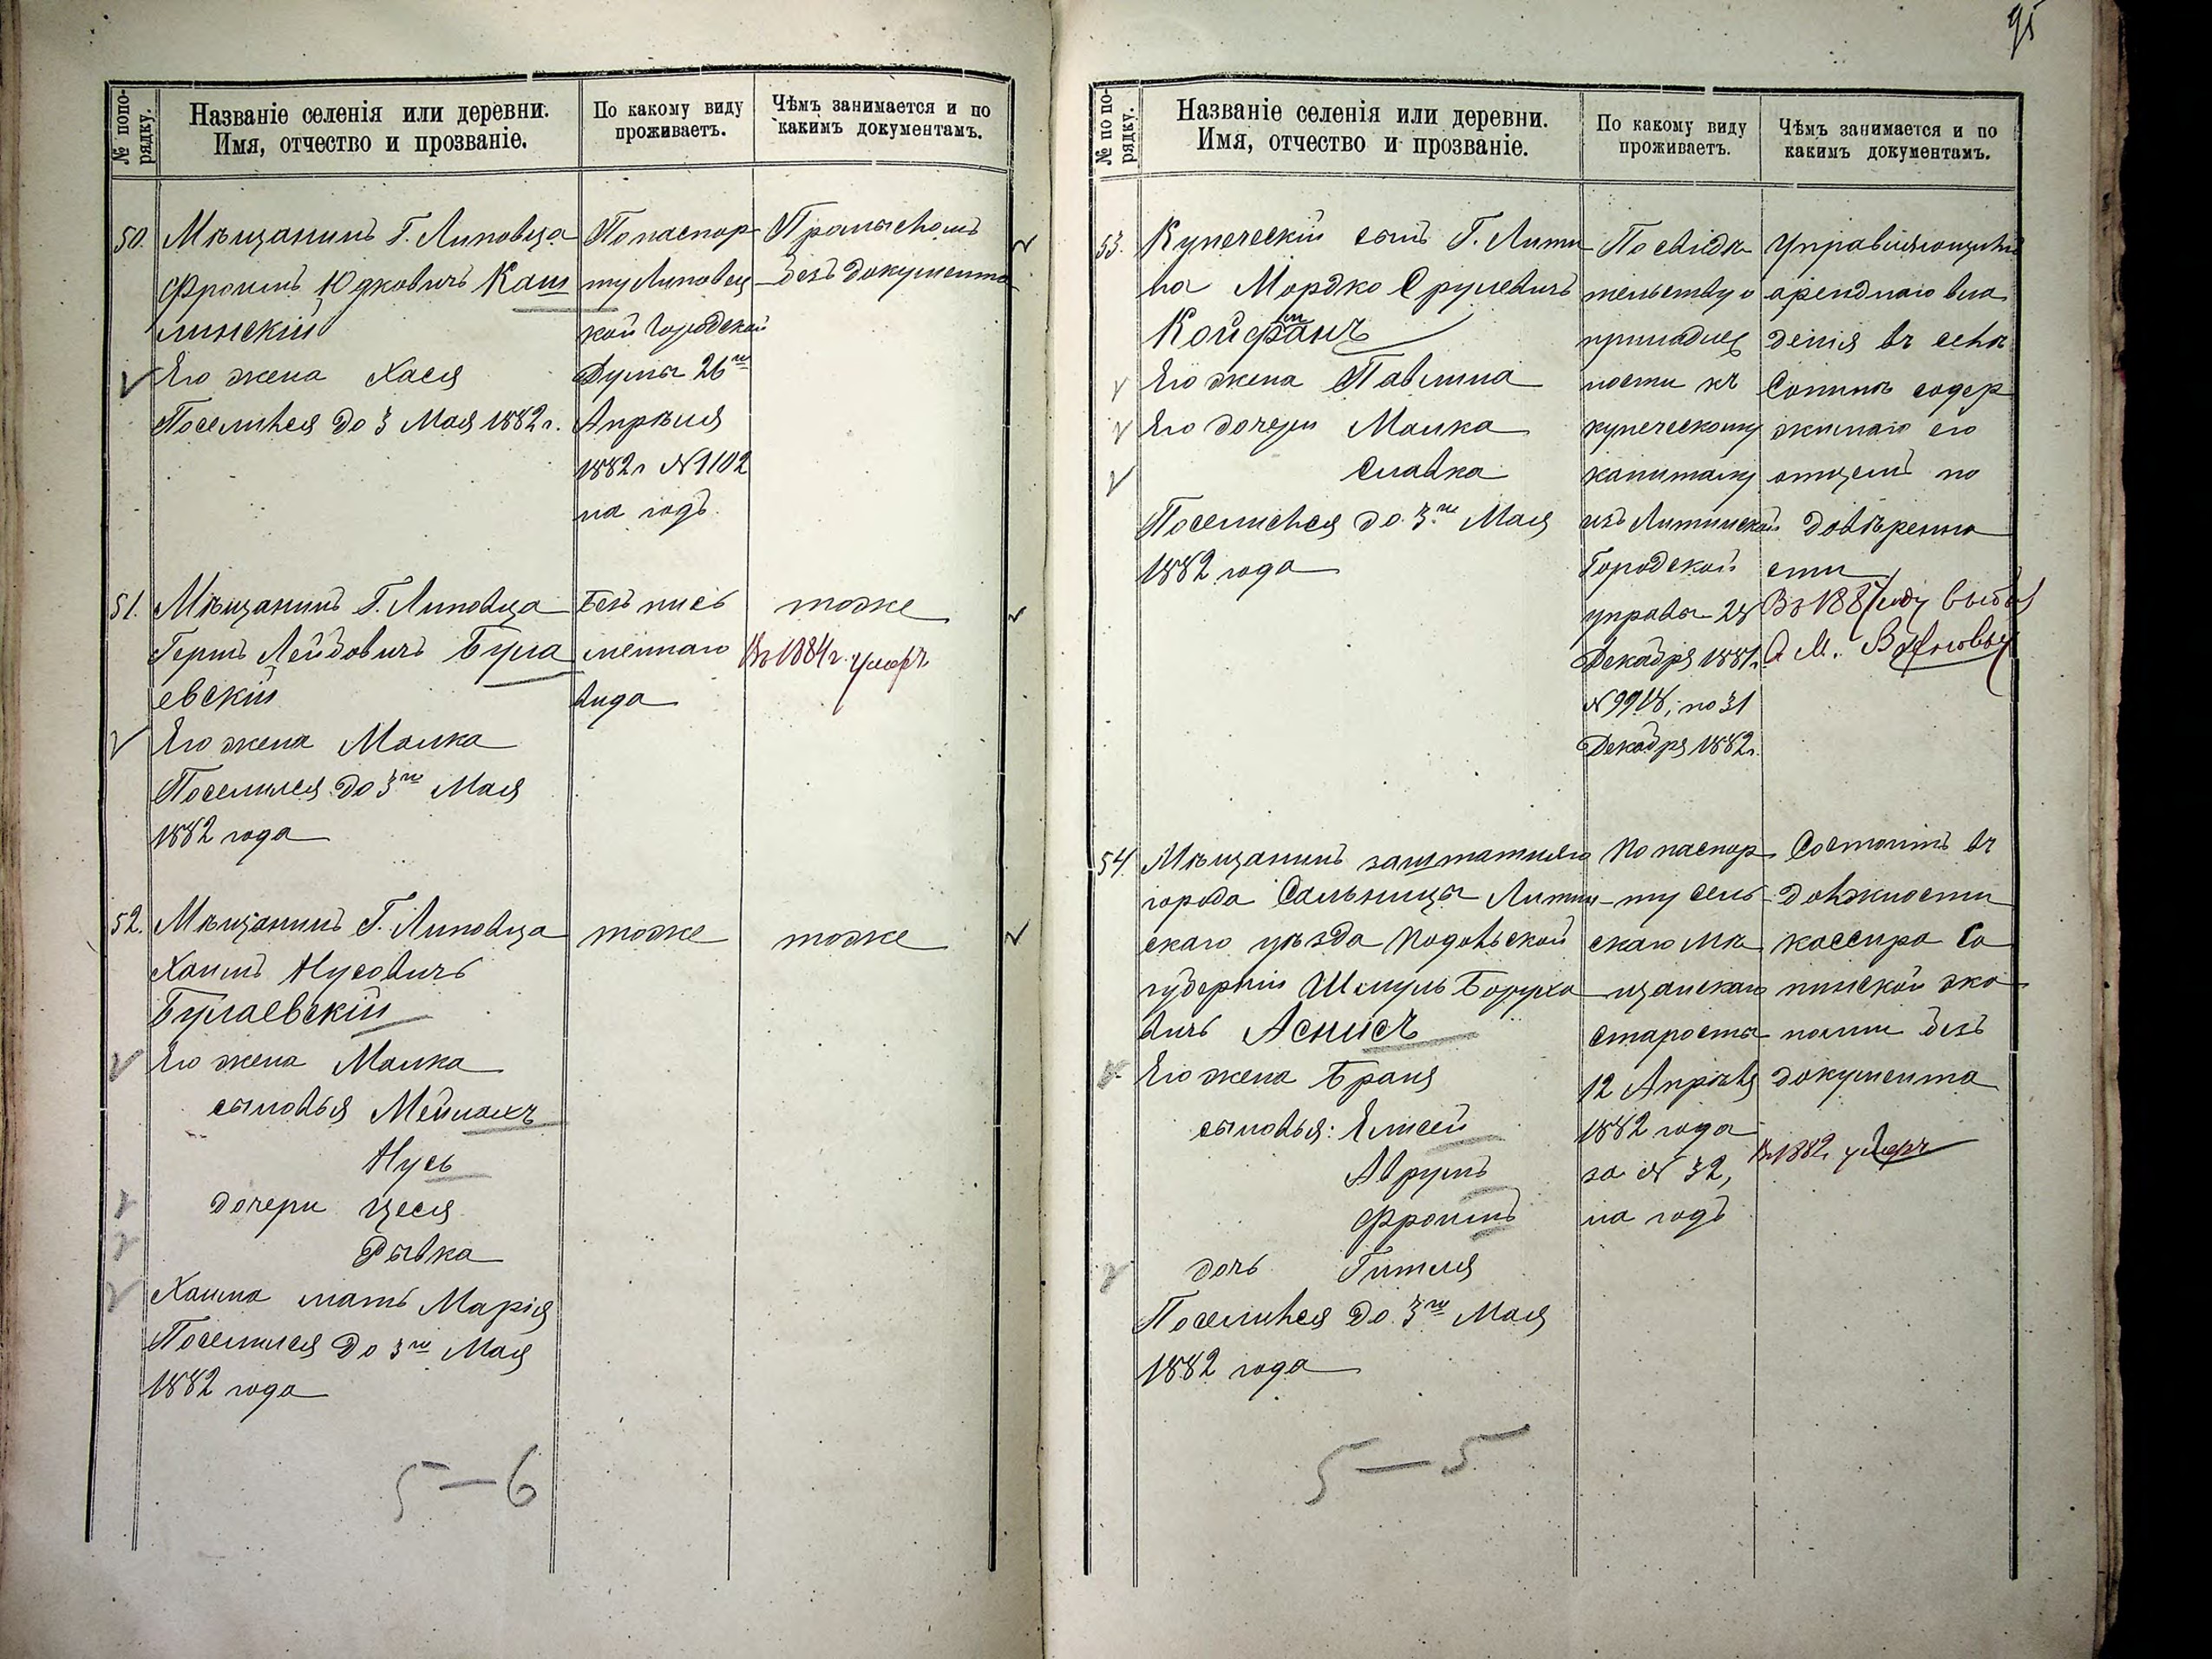 95
№ попо-
рядку.
Названіе селенія или деревни.
Имя, отчество и прозваніе.
По какому виду
проживаетъ.
Чѣмъ занимается и по
какимъ документамъ.
50.
Мѣщанинъ Г. Липовца
Фроимъ Юдковичъ Каш
линскій
Его жена Хася
Поселился до 3 Мая 1882 г.
По паспор
ту Липовец
кой Городской
Думы 26го
Апрѣля
1882 г № 1102
на годъ.
Промысломъ
безъ документа
51.
Мѣщанинъ Г. Липовца
Гершъ Лейбовичъ Буга
евскій
Его жена Малка
Поселился до 3го Мая
1882 года
Безъ пись
меннаго
вида
тоже
Въ 1884 г. умеръ
52.
Мѣщанинъ Г. Липовца
Хаимъ Нусовичъ
Бугаевскій
Его жена Малка
сыновья Мейлахъ
Нусь
дочери Цеся
Рывка
Хаима мать Марія
Поселился до 3го Мая
1882 года
тоже
тоже
5-6
№ по по-
рядку.
Названіе селенія или деревни.
Имя, отчество и прозваніе.
По какому виду
проживаетъ.
Чѣмъ занимается и по
какимъ документамъ.
53.
Купеческій сынъ Г. Лити
на Мордко Срулевичъ
Койфманъ
Его жена Павлина
Его дочери Малка
Славка
Поселился до 3го Мая
1882 года
По свидѣ
тельству о
принадлеж
ности къ
купеческому
капиталу
изъ Литинской
Городской
управы 28
Декабря 1881 г.
№ 9918, по 31
Декабря 1882 г.
Управляющимъ
аренднаго вла
денія въ селѣ
Сопинѣ содер
жимаго его
отцемъ по
довѣренно
сти
Въ 1887 году выбыл
54.
Мѣщанинъ заштатняго
города Сальницы Литин
скаго уѣзда Подольской
губерніи Шмуль Борухо
вичъ Аснисъ
Его жена Браня
сыновья: Елисей
Аврумъ
Фроимъ
дочь Гителя
Поселился до 3го Мая
1882 года
По паспор
ту Сель
скаго мѣ
щанскаго
старосты
12 Апрѣля
1882 года
за № 32,
на годъ
Состоитъ въ
должности
кассира Со
пинской эко
номіи безъ
документа
Въ 1882 умеръ
5-5